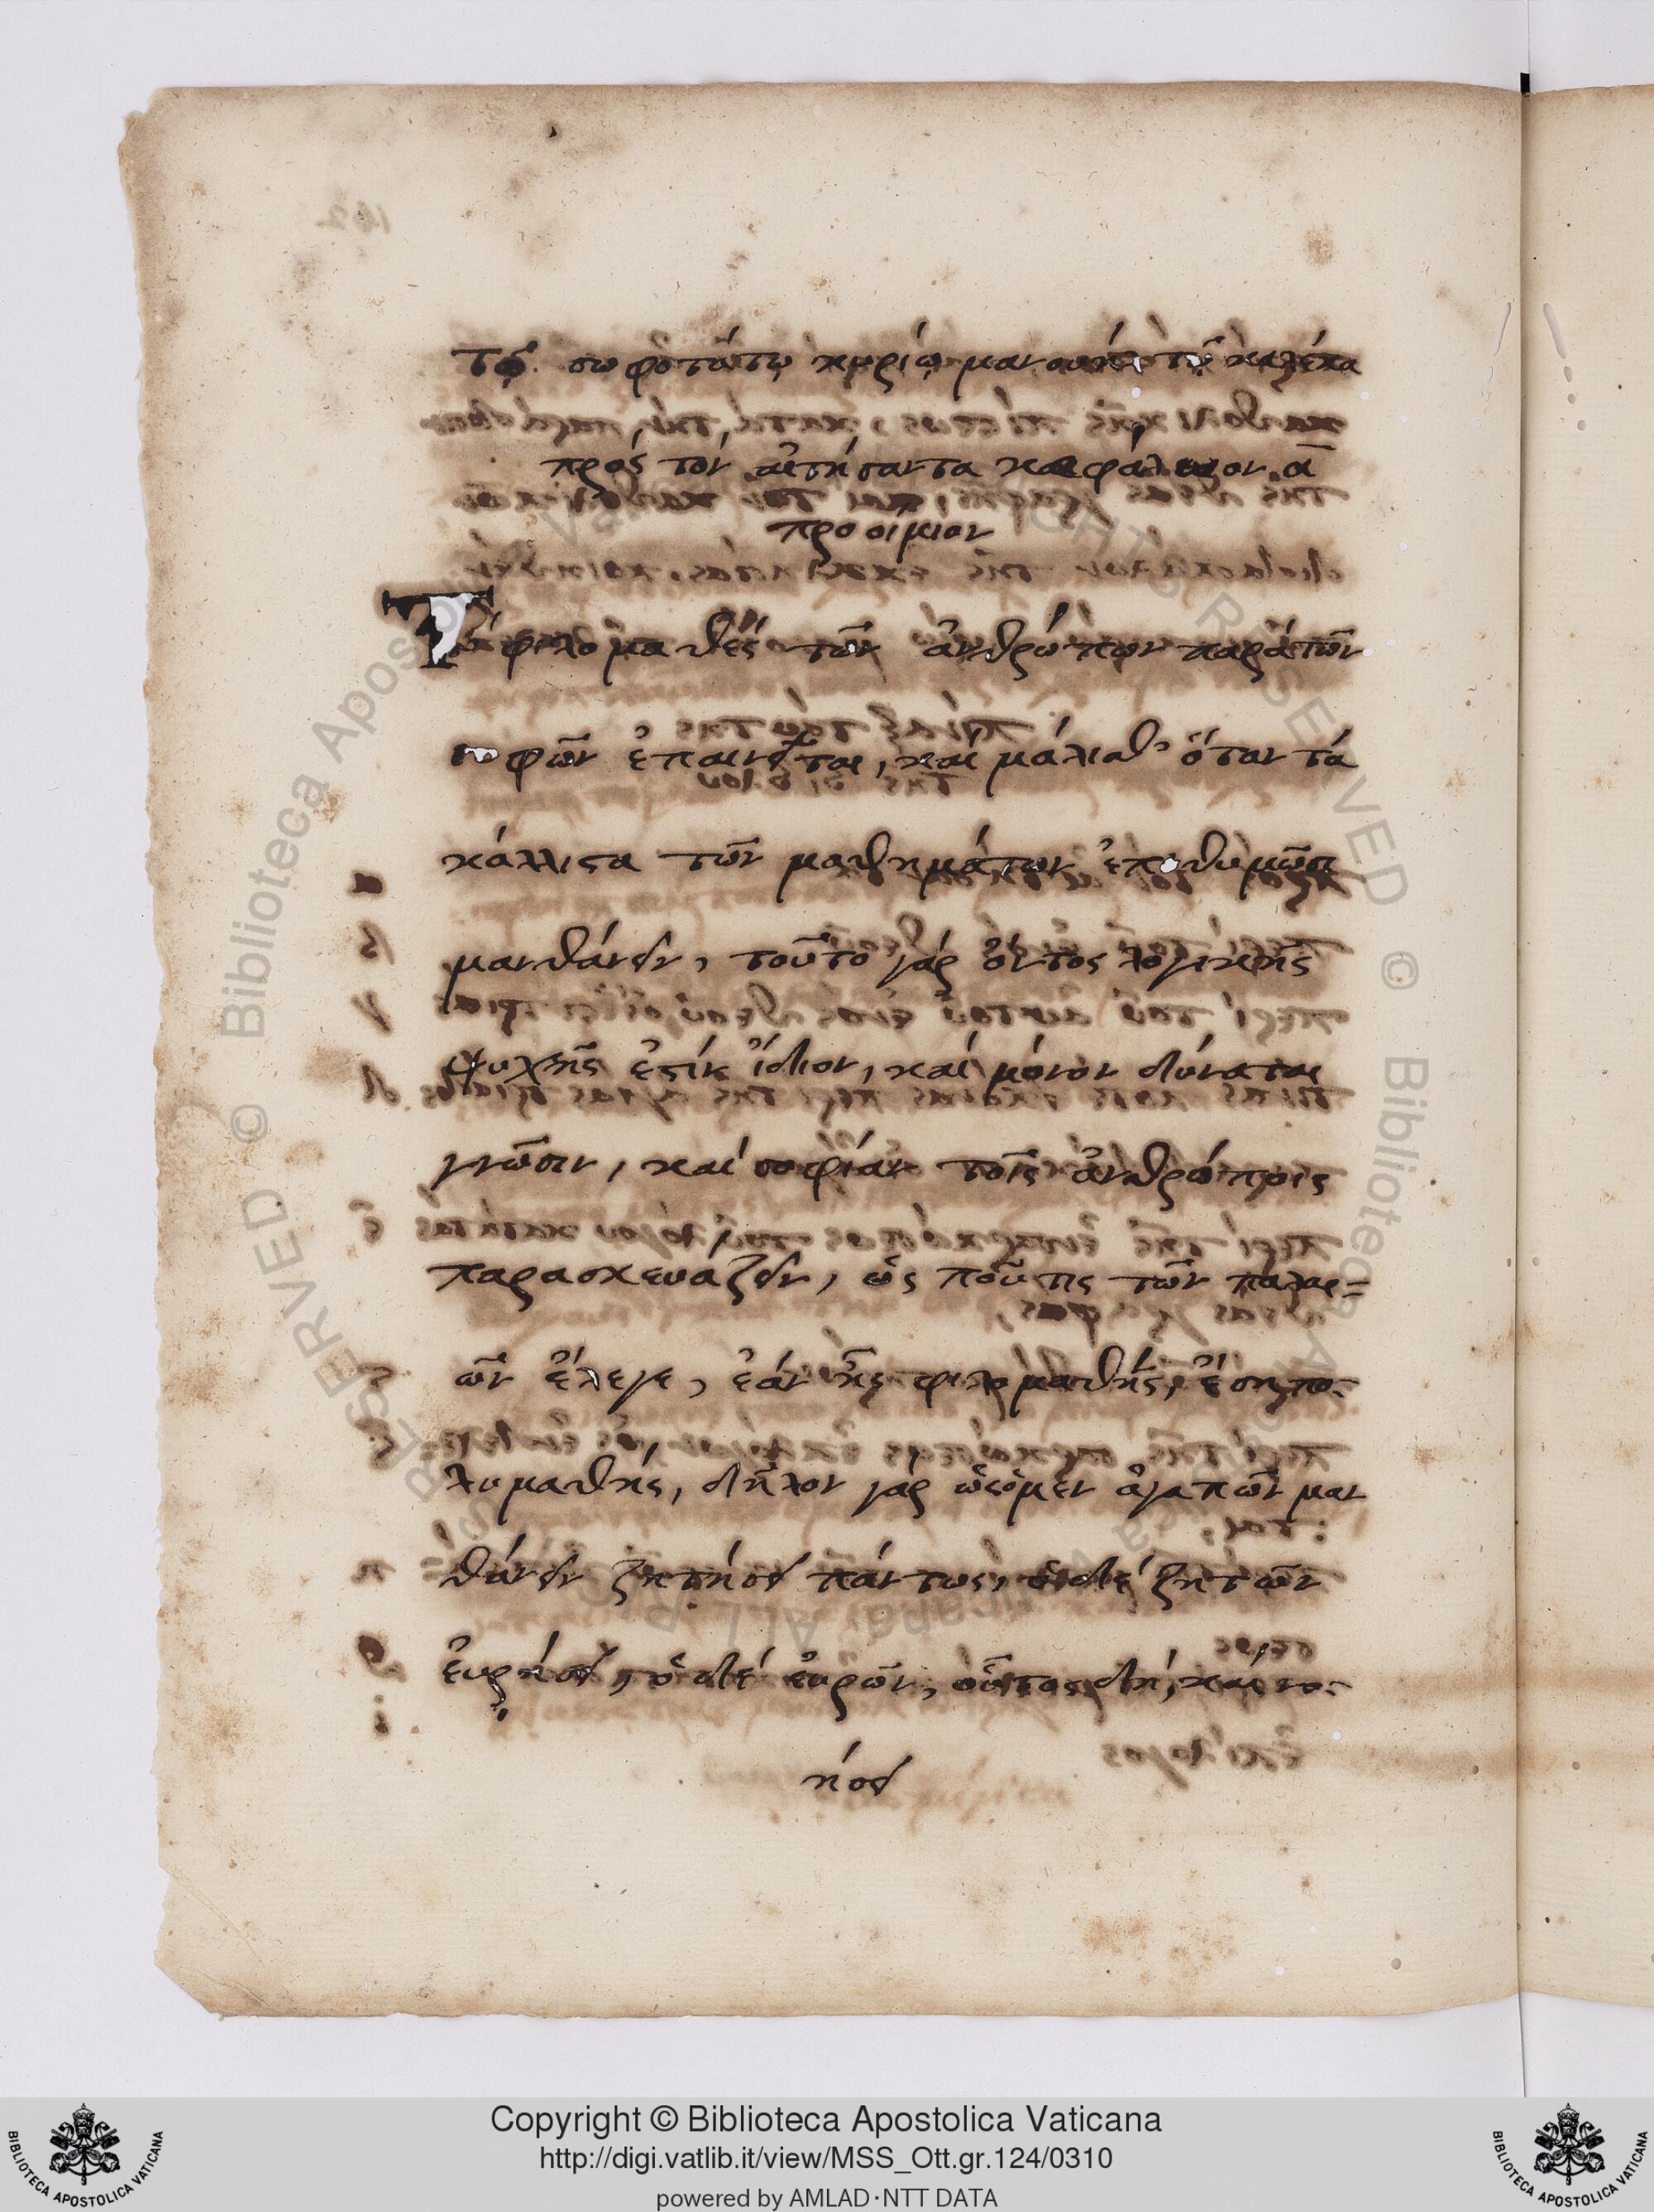 τῷ σωφοτάτῳ κυρίῳ μανουὴλ τῷ
πρός τόν αἰτήσαντα κεφάλαιον α
προοίμιον
Τό φιλομαθές τῶν ἀνθρώπων παρά τῶν
σοφῶν ἐπαινεῖται, καί μάλισθ' ὅταν τά
κάλλιστα τῶν μαθημάτων ἐπιθυμῶσι
μανθάνειν, τοῦτο γάρ ὄντος λογικῆς
ψυχῆς ἐστίν ἴδιον, καί μόνον δύναται
γνῶσιν, καί σοφίαν τοῖς ἀνθρώποις
παρασκευάζειν, ὥς πού τις τῶν παλαι=
ῶν ἔλεγε, ἐάν ᾖς φιλομαθής, ἔση πο-
λυμαθής, δῆλον γάρ ἀγαπῶν μαν
θάνειν ζητήσει πάντως, ὁ δέ ζητῶν
εὑρήσει, ὁ δέ εὑρῶν, οὗτος δή, καί νο-
ήσει
Copyright © Biblioteca Apostolica Vaticana
http://digi.vatlib.it/view/MSS_Ott.gr.124/0310
powered by AMLAD·NTT DATA
BIBLIOTECA APOSTOLICA VATICANA
BIBLIOTECA APOSTOLICA VATICANA